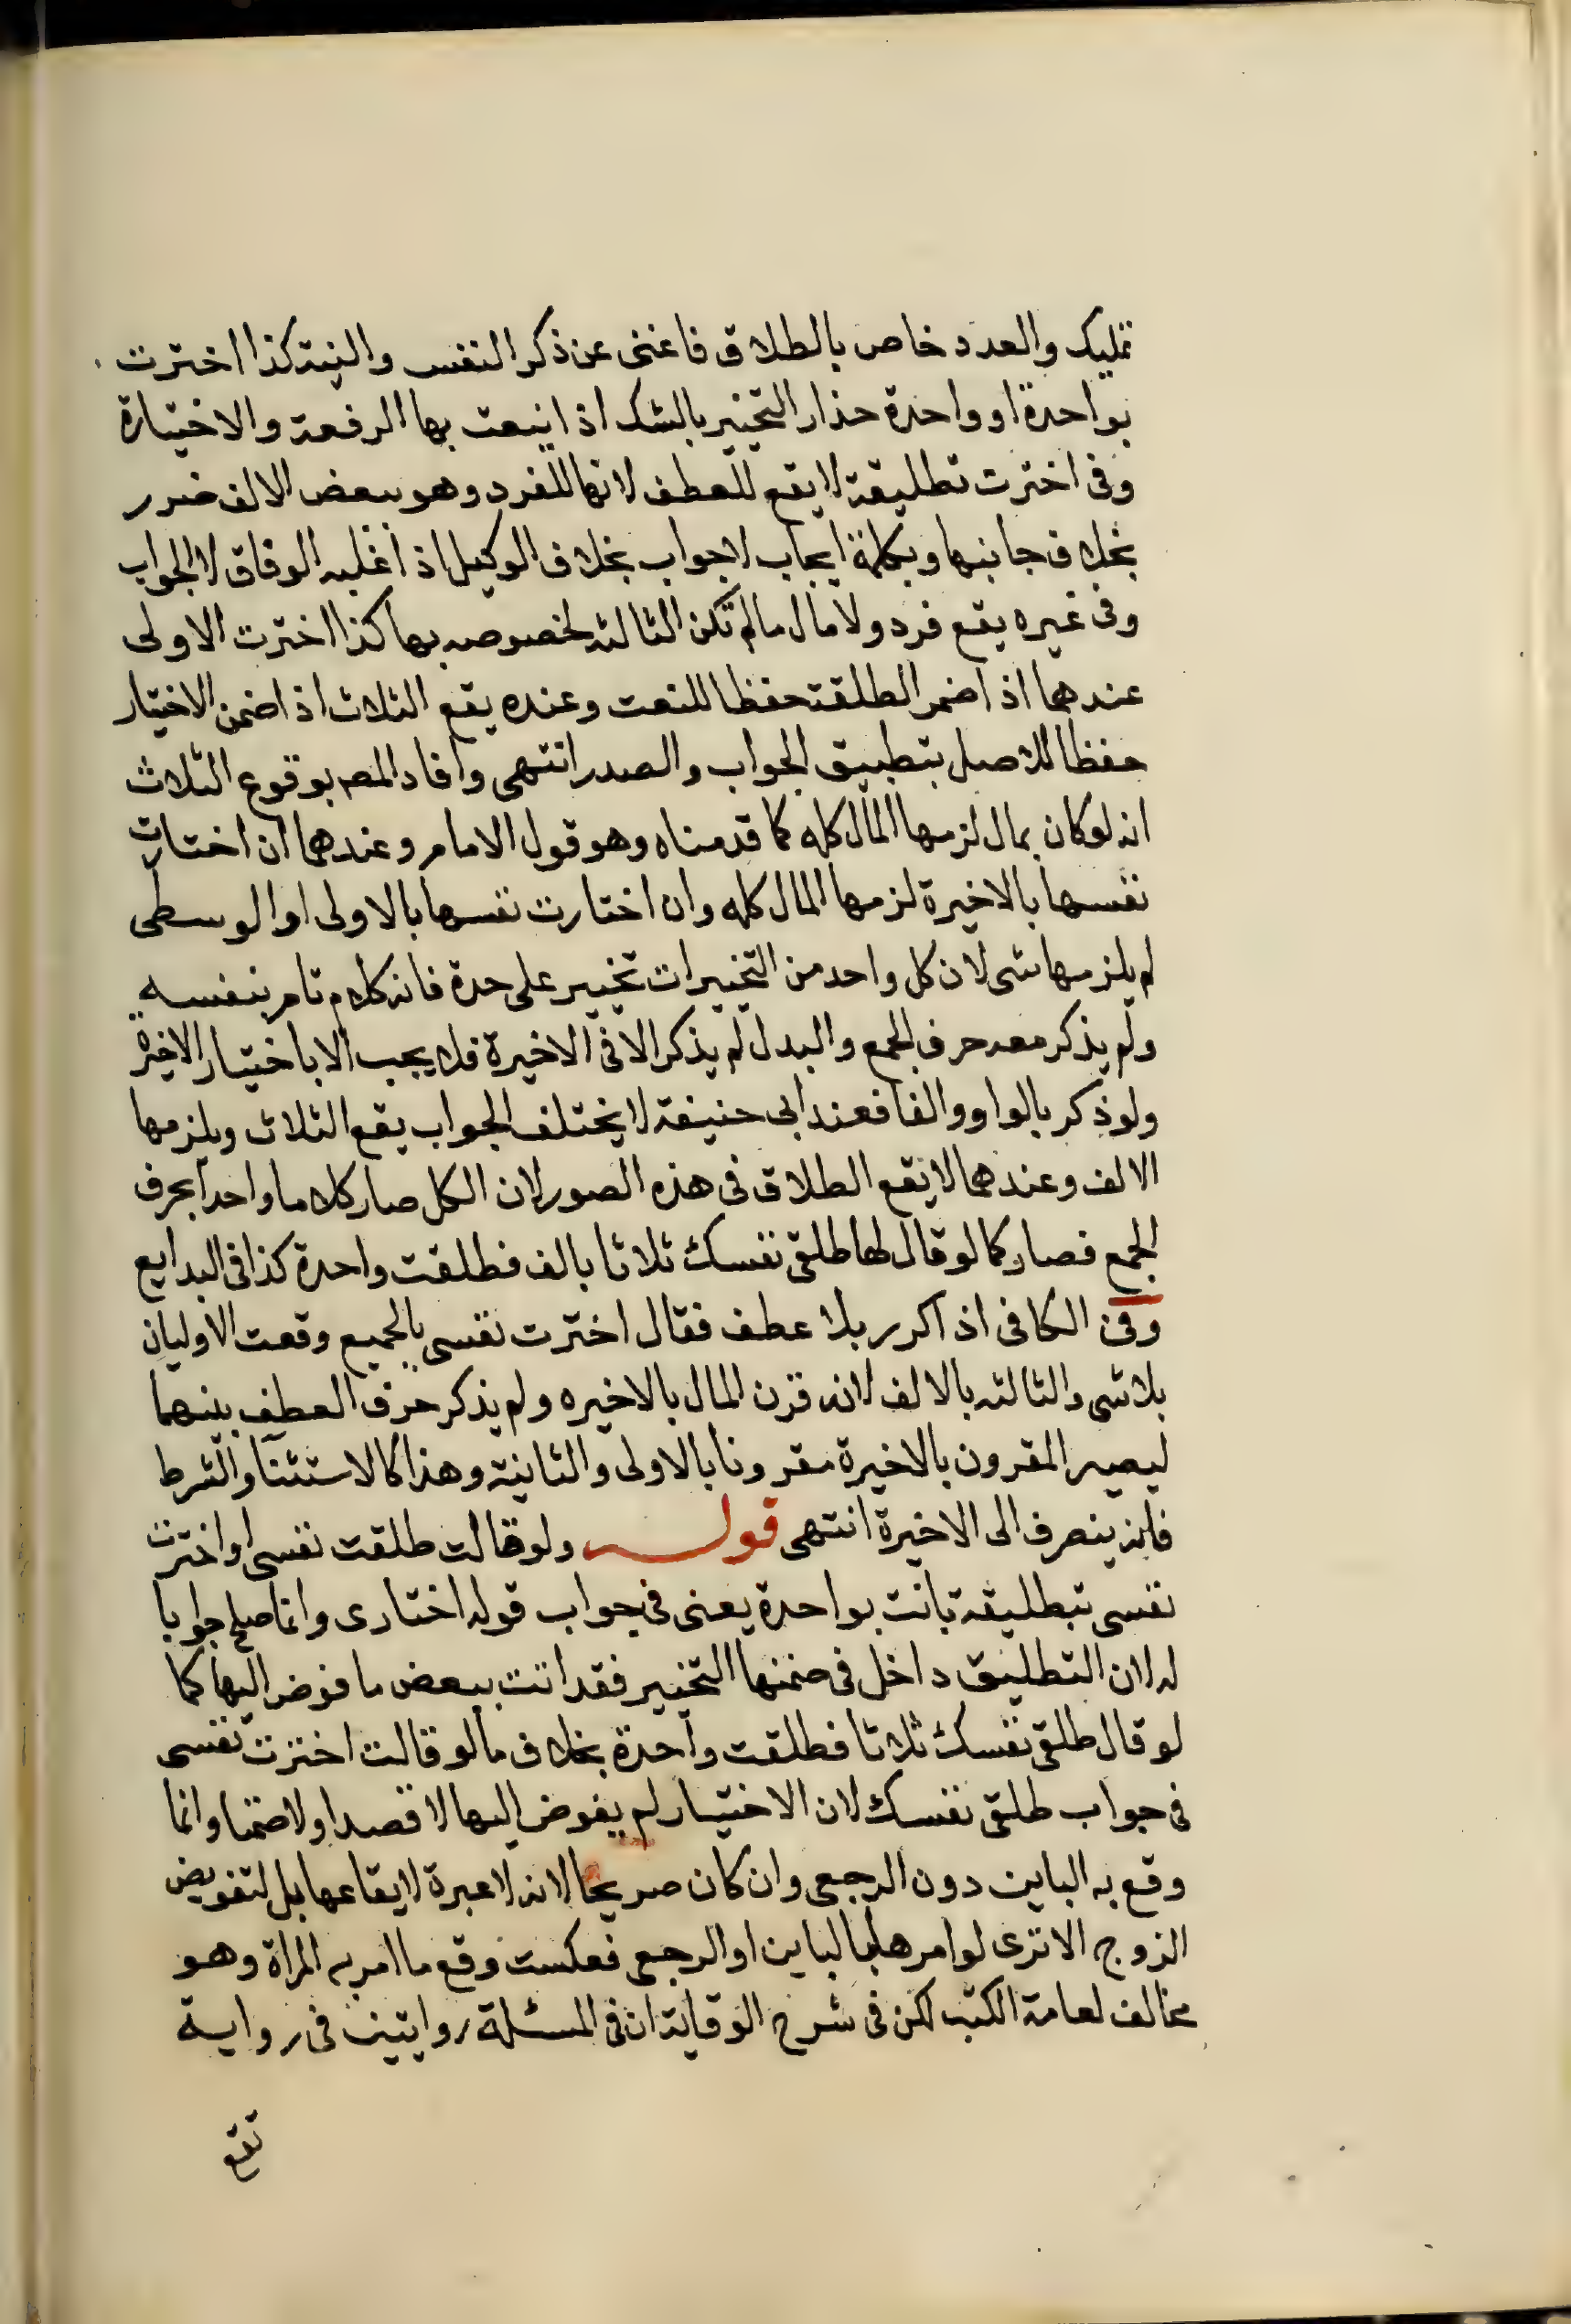 تمليك والعدد خاص بالطلاق فاغنى عن ذكر النفس والنية كذا اخترت
بواحدة او واحدة حذار التخيير بالشك اذ ايبعت بها الرفعة والاختيارة
وفى اخترت تطليقة لا يقع للعطف لانها للفرد وهو ببعض الالف ضرر
بخلاف جانبها وبكلمة ايجاب لا جواب بخلاف الوكيل اذ اغلبه الوفاق لا الجواب
وفى غيره يقع فرد ولا مال مالم تكن الثالثه لخصوصه بها كذا اخترت الاولى
عندهما اذ اضمر الطلقة حفظا للنعت وعنده يقع الثلاث اذ اضمن الاختيار
حفظا للاصل بتطبيق الجواب والصدر انتهى وافاد المصـ بوقوع الثلاث
انه لو كان بمال لزمها المال كله كما قدمناه وهو قول الامام وعندهما ان اختارت
نفسها بالاخيرة لزمها المال كله وان اختارت نفسها بالاولى او الوسطى
لم يلزمها شى لان كل واحد من التخييرات تخيير على حدة فانه كلام تام بنفسه
ولم يذكر معه حرف الجمع والبدل لم يذكر الا فى الاخيرة فلا يجب الا باختيار الاخيرة
ولو ذكر بالواو والفا فعند ابى حنيفة لا يختلف الجواب يقع الثلاث ويلزمها
الالف وعندهما لا يقع الطلاق فى هذه الصور لان الكل صار كلاما واحدا بحرف
الجمع فصار كما لو قال لها طلقى نفسك ثلاثا بالف فطلقت واحدة كذا فى البدايع
وفى الكافى اذا كرر بلا عطف فقال اخترت نفسى بالجميع وقعت الاوليان
بلا شى والثالثه بالالف لانه قرن المال بالاخيره ولم يذكر حرف العطف بينهما
ليصير المقرون بالاخيرة مقرونا بالاولى والثانية وهذا كالاستثنا والشرط
فانه ينصرف الى الاخيرة انتهى قوله ولو قالت طلقت نفسى او اخترت
نفسى بتطليقة بانت بواحدة يعنى فى جواب قوله اختارى وانما صلح جوابا
له لان التطليق داخل فى ضمنها التخيير فقد اتت ببعض ما فوض اليها كما
لو قال طلقى نفسك ثلاثا فطلقت واحدة بخلاف ما لو قالت اخترت نفسى
فى جواب طلقى نفسك لان الاختيار لم يفوض اليها لا قصدا ولا ضمنا وانما
وقع به الباين دون الرجعى وان كان صريحا لانه لا عبرة لايقاعها بل لتفويض
الزوج الا ترى لو امرها بالباين او الرجعى فعكست وقع ما امر به المراة وهو
مخالف لعامة الكتب لكن فى شرح الوقاية ان فى المسئلة روايتين فى رواية
تقع